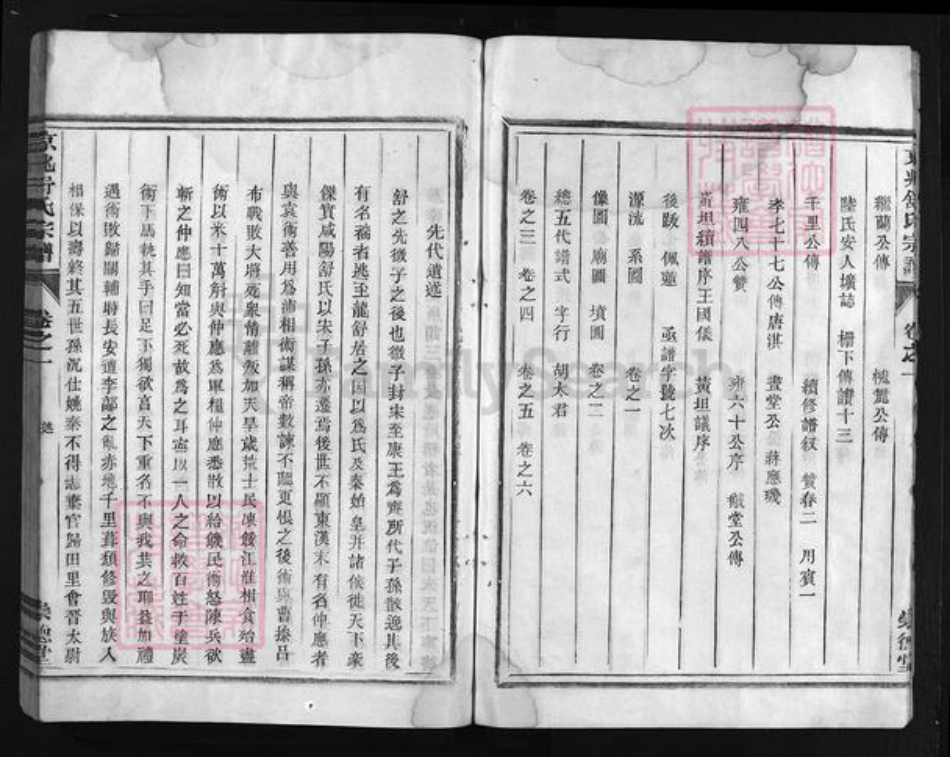 繼蘭公傳　　　　槐麓公傳
陸氏安人壙誌　柵下傳讚十三
千里公傳　　　　續修譜叙　贊春二　用賓一
孝七十七公傳唐淇　晝堂公　蔣應璣
雍四八公贊　　　雍六十公序　　徽堂公傳
黃坦續譜序王國儀　　黃坦議序
後跋　佩蘧　　函譜字號七次
源流　系圖　　　卷之一
像圖　廟圖　墳圖　　卷之二
總五代譜式　字行　胡太君
卷之三　卷之四　　卷之五　卷之六
卷之一
崇德堂
先代遺迹
舒之先微子之後也微子封宋至康王為齊所代子孫散逸其後
有名璊者逃至龍舒居之因以為氏及秦始皇并諸侯徙天下豪
傑實咸陽舒氏以宋子孫亦遷焉後世不顯東漢末有名仲應者
與袁術善用為沛相術謀稱帝數諫不聽更恨之後術與曹操呂
布戰敗大將死衆情離叛加天旱歲荒士民凍餒江淮相食殆盡
術以米十萬斛與仲應為軍糧仲應悉散以給饑民術怒陳兵欲
斬之仲應曰知當必死故為之耳寧以一人之命救百姓于塗炭
術下馬執其手曰足下獨欲言天下重名不與我共之耶益加禮
遇術敗歸關輔時長安遭李部之亂赤地千里葺頹修毀與族人
相保以壽終其五世孫沉仕姚秦不得志棄官歸田里會晉太尉
京兆舒氏宗譜
卷之一
崇德堂
FamilySearch